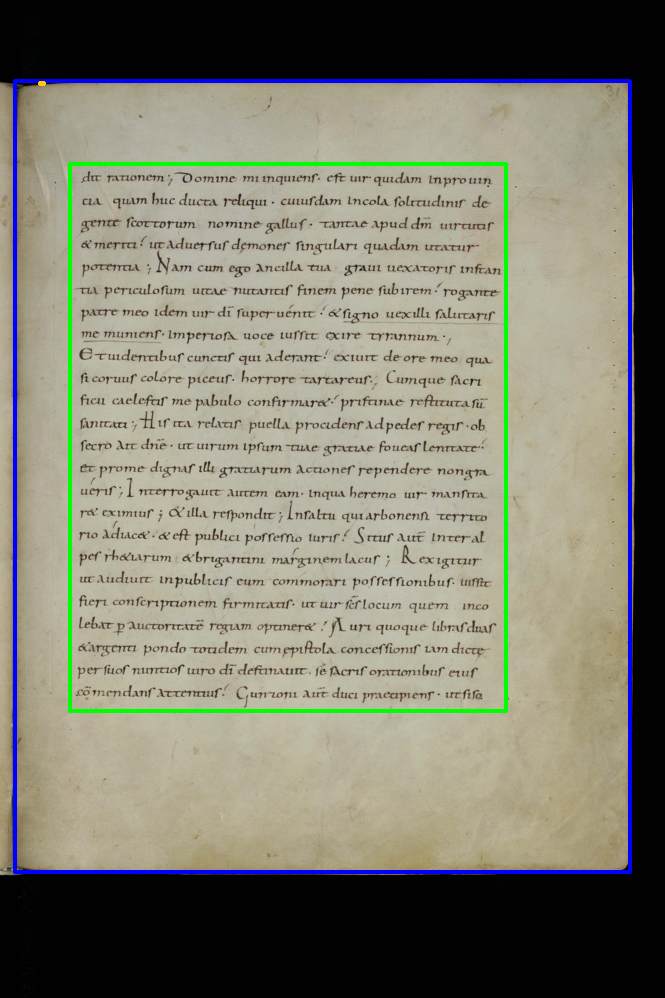 31
dit rationem; Domine mi inquiens· est uir quidam in prouin
cia quam huc ducta reliqui · cuiusdam incola solitudinis de
gente scottorum nomine gallus · tantae apud dm̄ uirtutis
& meriti· ut aduersus dęmones singulari quadam utatur
potentia ; Nam cum ego ancilla tua graui uexatoris instan
tia periculosum uitae nutantis finem pene subirem· rogante
patre meo idem uir dī superuenit· & signo uexilli salutaris
me muniens· imperiosa uoce iussit exire tyrannum·,
Et uidentibus cunctis qui aderant· exiuit de ore meo qua
si coruus colore piceus· horrore tartareus; Cumque sacri
ficii caelestis me pabulo confirmar&· pristinae restituta sū
sanitati; His ita relatis puella procidens ad pedes regis· ob
secro ait dnē· ut uirum ipsum tuae gratiae foueas lenitate·
et prome dignas illi gratiarum actiones rependere non gra
ueris; Interrogauit autem eam· in qua heremo uir mansita
r& eximius; & illa respondit; In saltu qui arbonensi territo
rio adiac&· & est publici possessio iuris· Situs aut̄ inter al
pes rh&iarum & brigantini marginem lacus ; Rex igitur
ut audiuit in publicis eum commorari possessionibus· iussit
fieri conscriptionem firmitatis· ut uir scs̄ locum quem inco
lebat ꝑ auctoritatē regiam optiner&· Auri quoque libras duas
& argenti pondo totidem cum epistola concessionis iam dictę
per suos nuntios uiro dī destinauit· se sacris orationibus eius
cōmendans attentius· Gunzoni aut̄ duci praecipiens · ut si sa